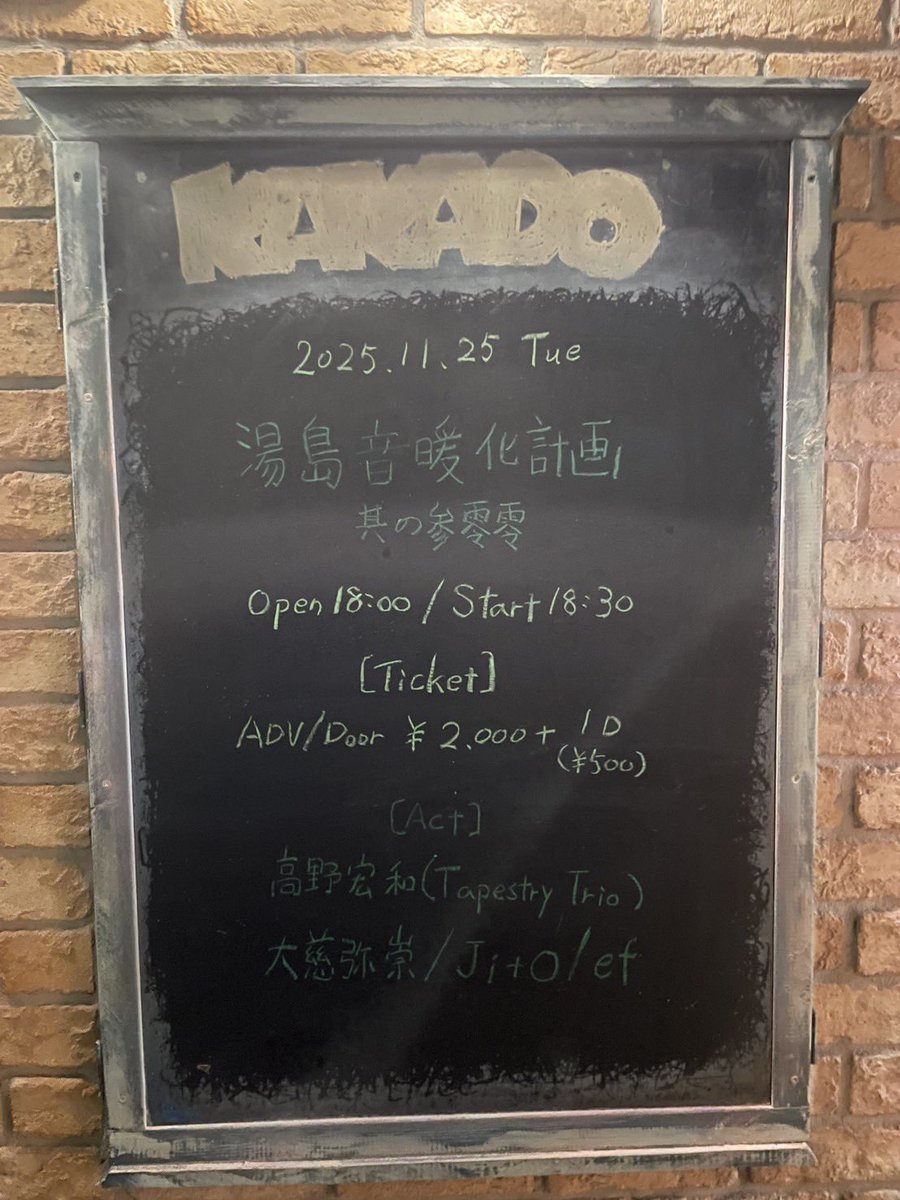 KAKADO
2025.11.25 Tue
湯島音暖化計画
其の参零零
Open 18:00 / Start 18:30
[Ticket]
ADV/Door ¥2.000+ 1D
(¥500)
[Act]
高野宏和(Tapestry Trio)
大慈弥崇/JitO/ef